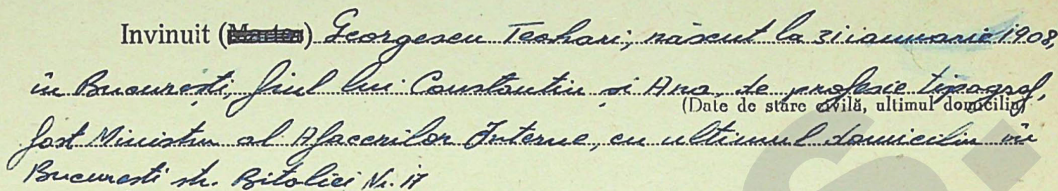 Invinuit (Martor) Georgescu Teohari, născut la 31 ianuarie 1908,
în București, fiul lui Constantin și Ana, de profesie tipograf,
(Date de stare civilă, ultimul domiciliu)
fost Ministru al Afacerilor Interne, cu ultimul domiciliu în
București str. Bitoliei Nr. 17